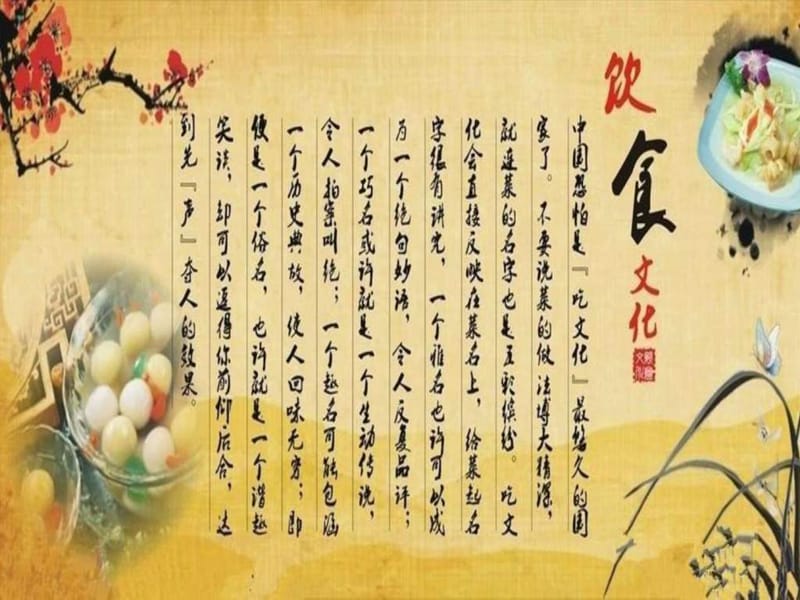 饮食文化
中国恐怕是『吃文化』最悠久的国
家了。不要说菜的做法博大精深，
就连菜的名字也是五彩缤纷。吃文
化会直接反映在菜名上，给菜起名
字很有讲究，一个雅名也许可以成
为一个绝句妙语，令人反复品评；
一个巧名或许就是一个生动传说，
令人拍案叫绝；一个趣名可能包涵
一个历史典故，使人回味无穷；即
便是一个俗名，也许就是一个谐趣
笑谈，却可以逗得你前仰后合，达
到先『声』夺人的效果。